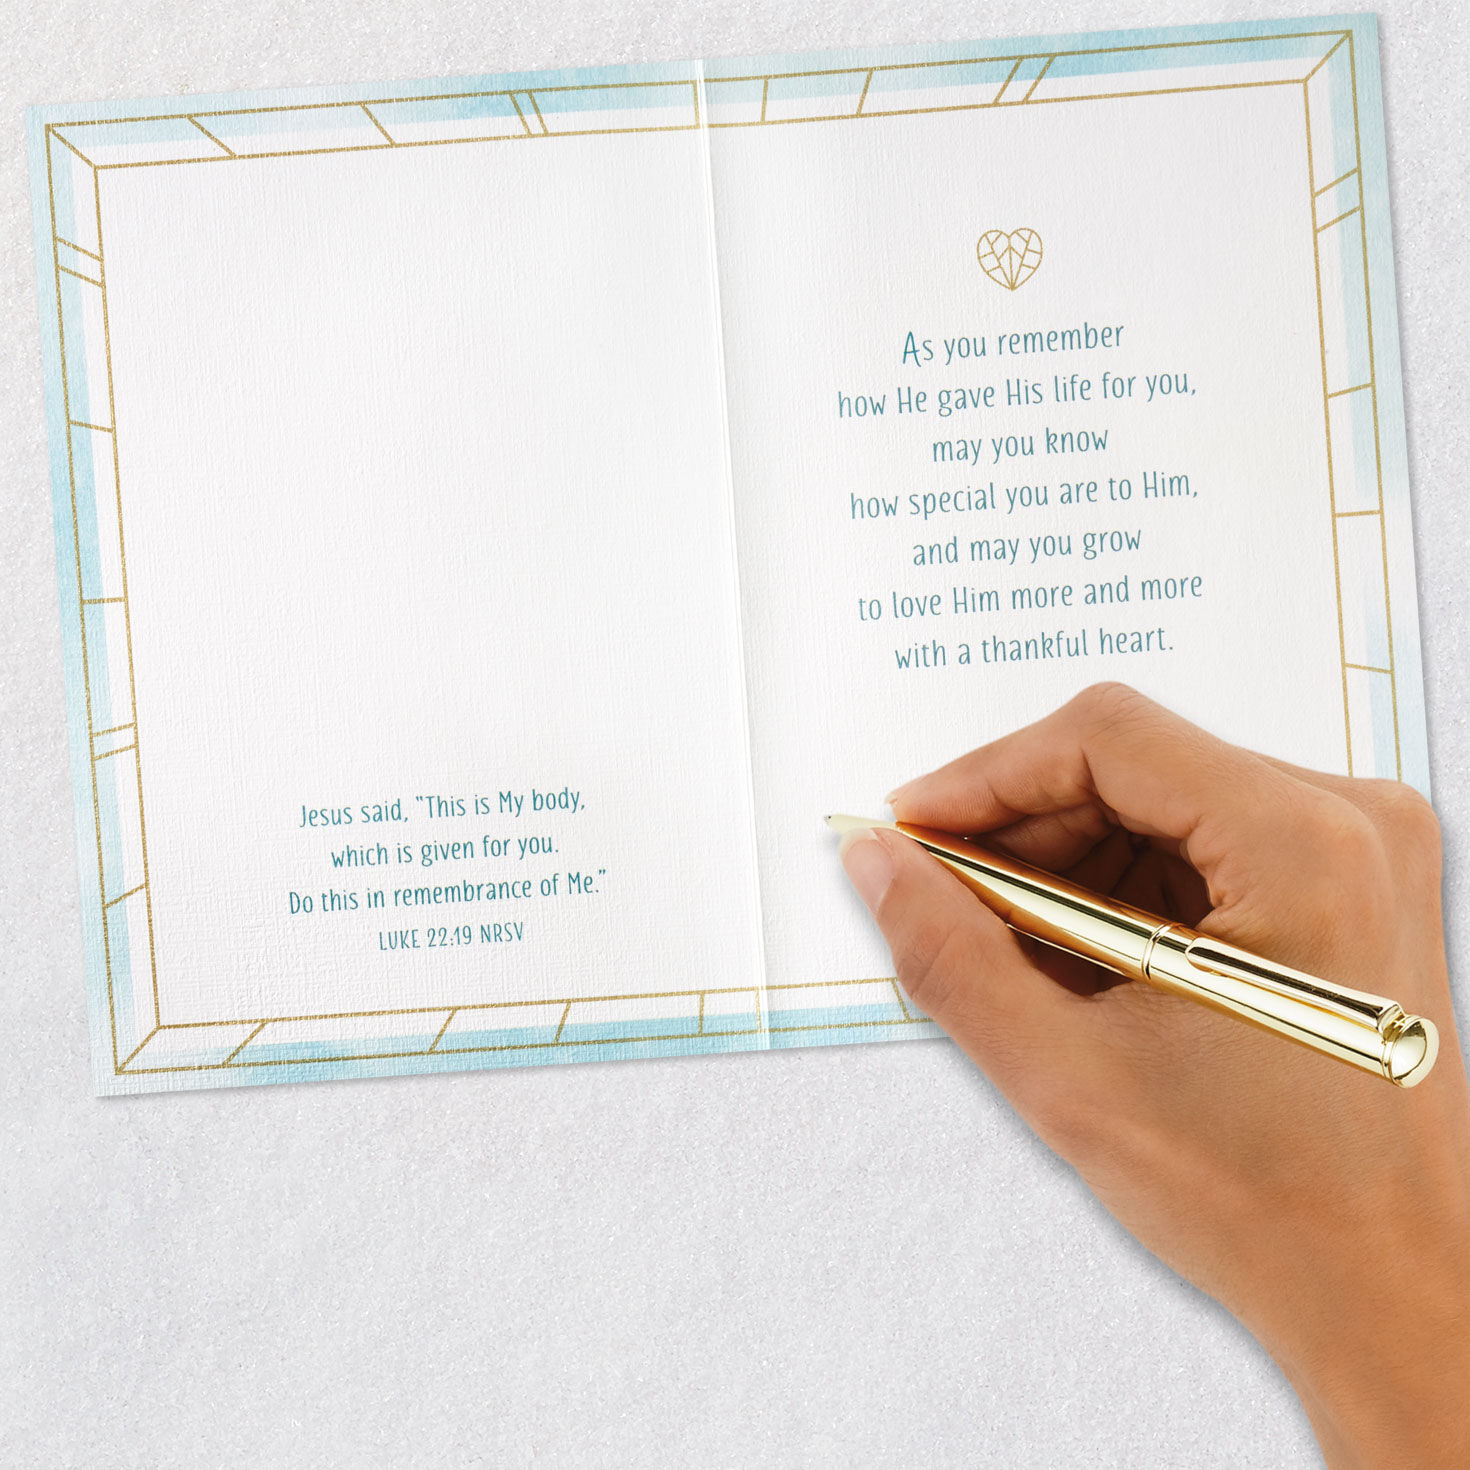 Jesus said, "This is My body,
which is given for you.
Do this in remembrance of Me."
LUKE 22:19 NRSV
As you remember
how He gave His life for you,
may you know
how special you are to Him,
and may you grow
to love Him more and more
with a thankful heart.